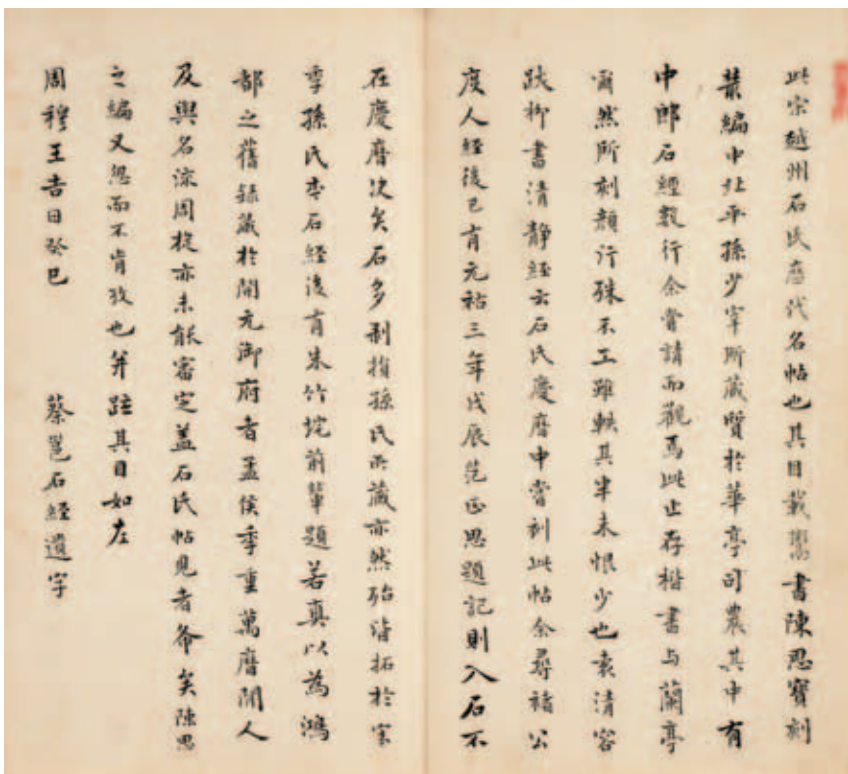 此宋越州石氏歷代名帖也其目載鬻書陳思寶刻
叢編中北平孫少宰所藏質於華亭司農其中有
中郎石經數行余嘗請而觀焉此止存楷書与蘭亭
爾然所刻顏行殊不工雖軼其半未恨少也袁清容
跋柳書清静經云石氏慶曆中嘗刻此帖余尋褚公
度人經後已有元祐三年戊辰范正思題記則入石不
在慶曆決矣石多剥損孫氏所藏亦然殆皆拓於宋
季孫氏本石經後有朱竹垞前輩題若真以為鴻
都之舊録藏於開元御府者孟侯季重萬曆間人
及與名流周旋亦未能審定蓋石氏帖見者希矣陳思
之編又忽而不肯攷也并註其目如左
周穆王吉日癸巳 蔡邕石經遺字